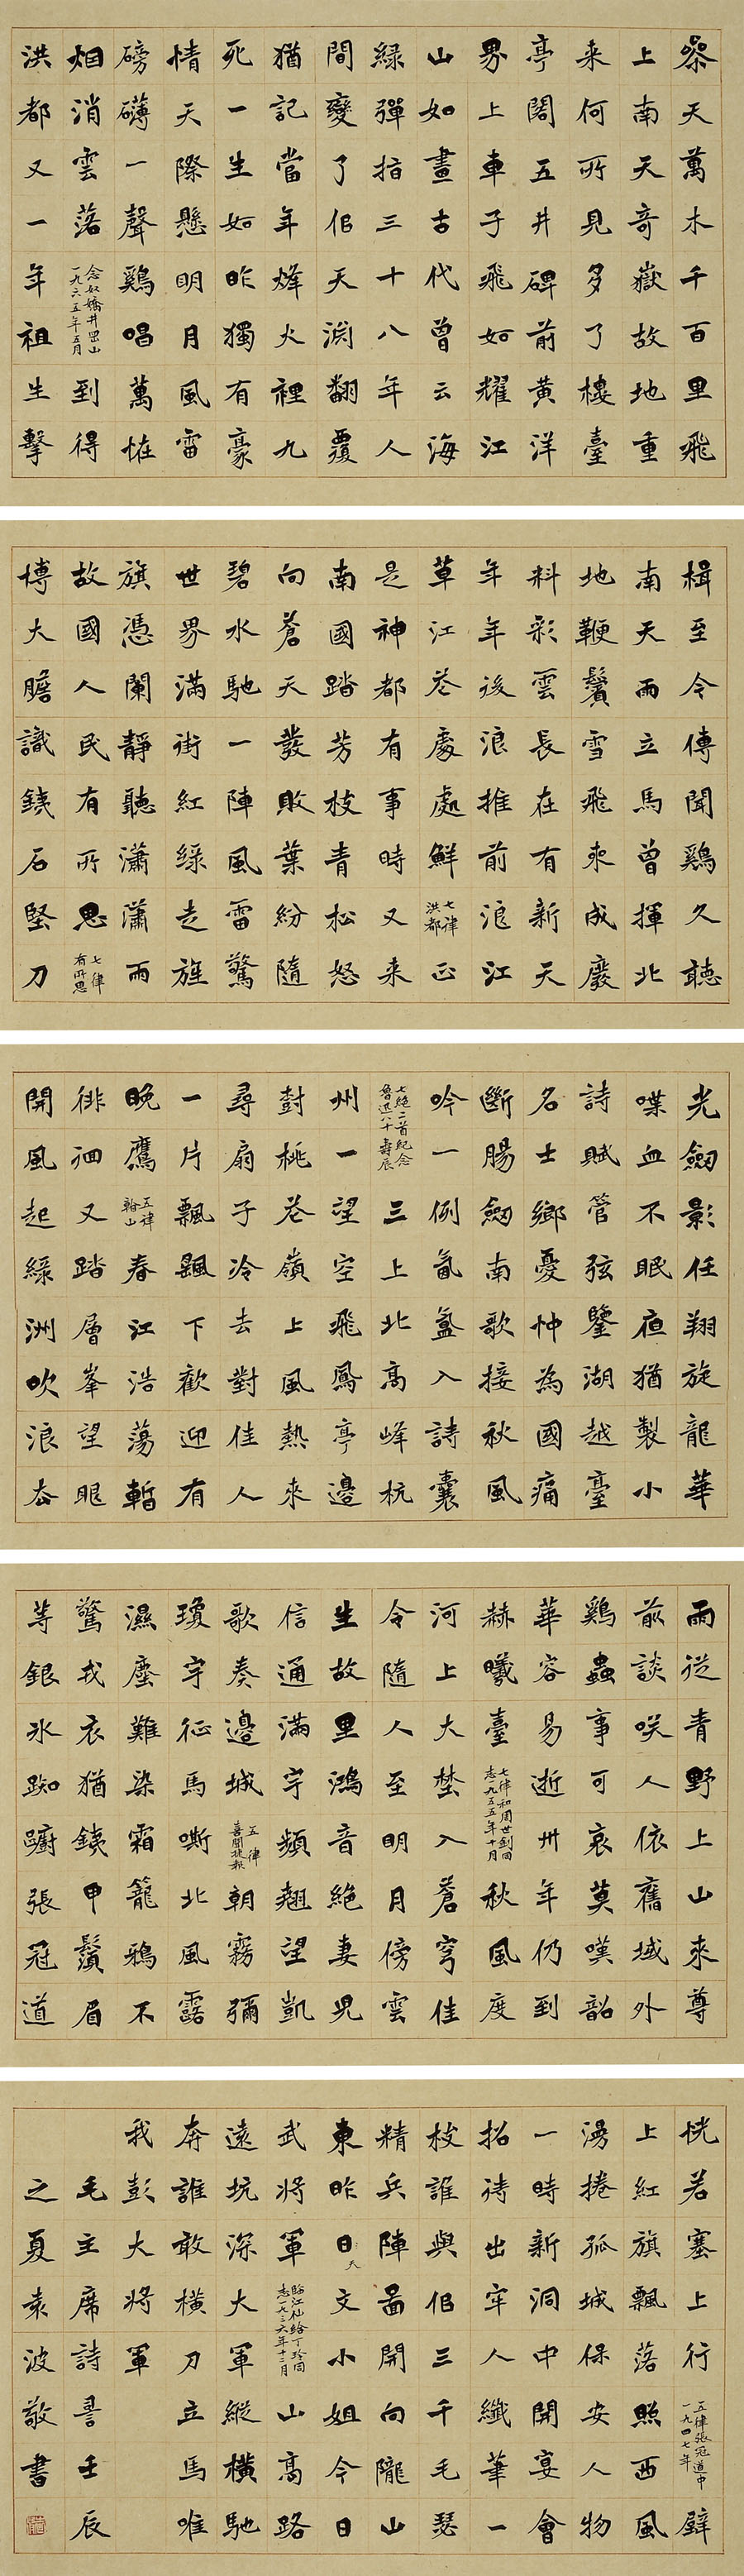 參天萬木千百里飛
上南天奇嶽故地重
来何所見多了樓臺
亭閣五井碑前黄洋
界上車子飛如耀江
山如畫古代曾云海
緑彈指三十八年人
間變了似天渊翻覆
猶記當年烽火裡九
死一生如昨獨有豪
情天際懸明月風雷
磅礴一聲鷄唱萬怪
烟消雲落 念奴嬌井罡山 一九六五年五月 到得
洪都又一年祖生擊
楫至今傳聞鷄久聽
南天雨立馬曾揮北
地鞭鬢雪飛来成廢
料彩雲長在有新天
年年後浪推前浪江
草江花處處鮮 七律洪都 正
是神都有事時又来
南國踏芳枝青松怒
向蒼天發敗葉紛隨
碧水馳一陣風雷驚
世界滿街紅緑走旌
旗憑闌靜聽瀟瀟雨
故國人民有所思 七律有所思
博大膽識鐵石堅刀
光劍影任翔旋龍華
喋血不眠夜猶製小
詩賦管弦鑒湖越臺
名士鄉憂忡為國痛
斷腸劍南歌接秋風
吟一例氤氳入詩囊
七絶二首紀念魯迅八十壽辰 三上北高峰杭
州一望空飛鳳亭邊
樹桃花嶺上風熱来
尋扇子冷去對佳人
一片飄飃下歡迎有
晚鷹 五律看山 春江浩蕩暫
徘徊又踏層峯望眼
開風起緑洲吹浪去
雨從青野上山来尊
前談咲人依舊域外
鷄蟲事可哀莫嘆韶
華容易逝卅年仍到
赫曦臺 七律和周世釗同志一九五五年十月 秋風度
河上大埜入蒼穹佳
令隨人至明月傍雲
生故里鴻音絶妻兒
信通滿宇頻翹望凱
歌奏邊城 五律喜聞捷報 朝霧彌
瓊宇征馬嘶北風露
濕塵難染霜籠鴉不
驚戎衣猶鐵甲鬚眉
等銀冰踟躕張冠道
恍若塞上行 五律張冠道中 一九四七年 壁
上紅旗飄落照西風
漫捲孤城保安人物
一時新洞中開宴會
招待出牢人纖筆一
枝誰與似三千毛瑟
精兵陣圖開向隴山
東昨日天文小姐今日
武將軍 臨江仙給丁玲同志一九三六年十二月 山高路
遠坑深大軍縱橫馳
奔誰敢橫刀立馬唯
我彭大將軍
毛主席詩 壬辰
之夏袁波敬書